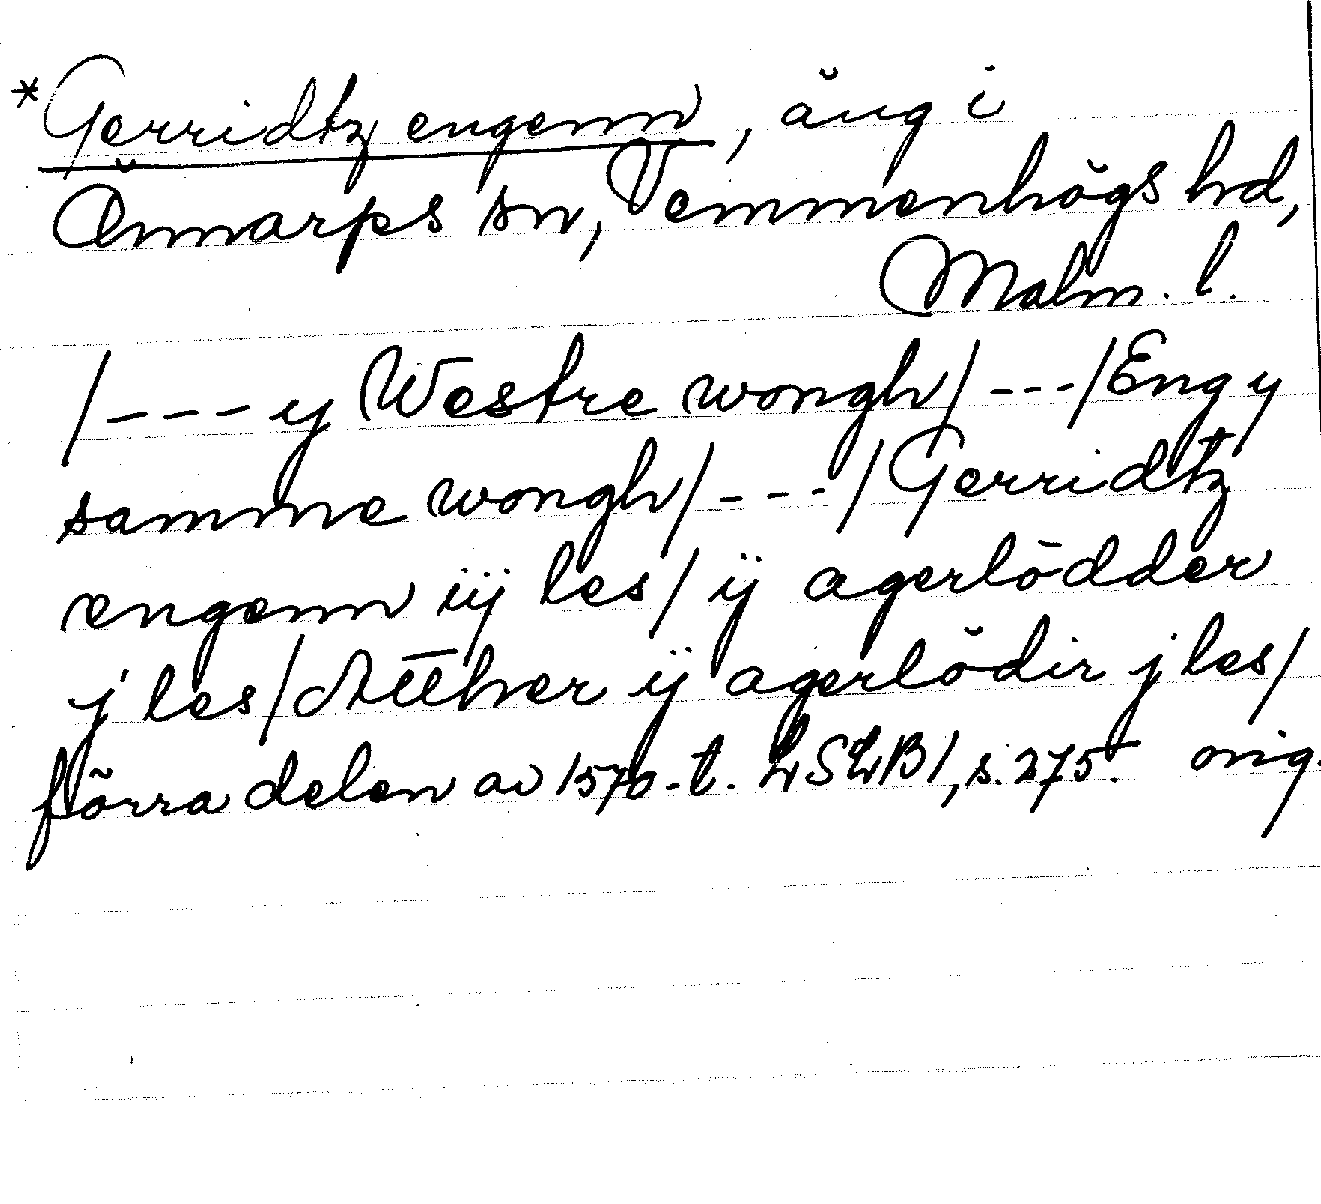 *Gerridtz engenn, äng i
Önnarps sn, Vemmenhögs hd,
Malm. l.
/---y Westre wongh/---/Eng y
samme wongh/---/Gerridtz
engenn iij les/ ij agerlödder
j les/ Atther ij agerlödir j les/
förra delen av 1570-t. LSLB1, s. 275. orig.